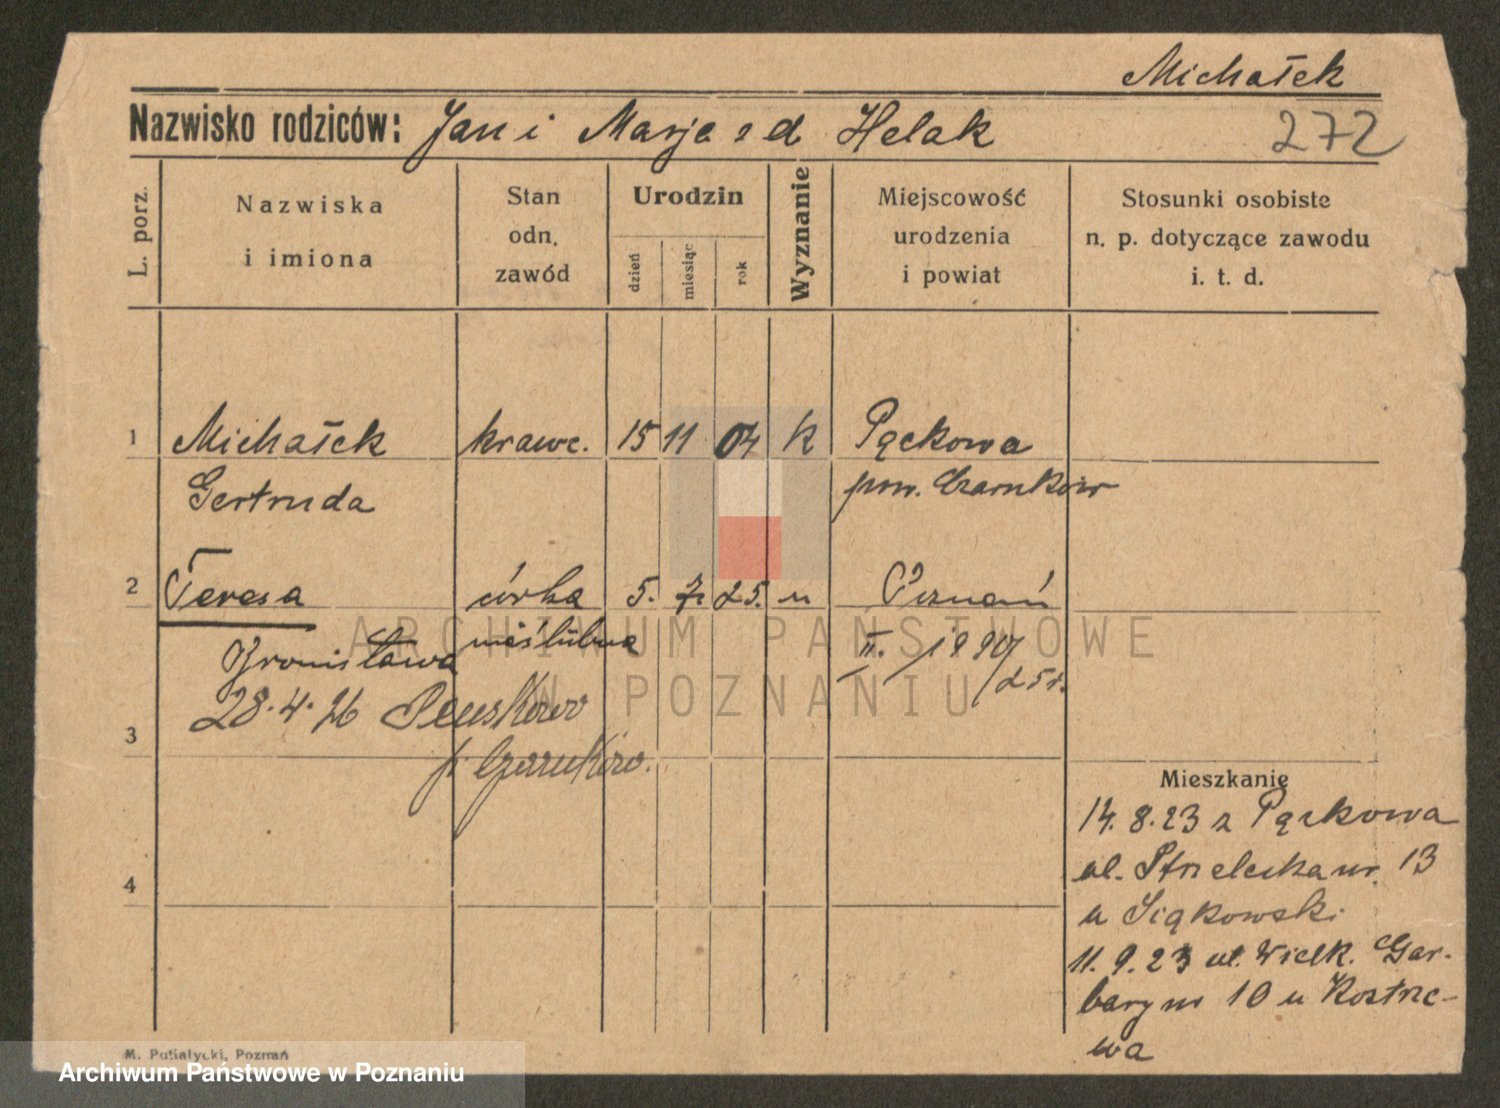 Michałek
Nazwisko rodziców: Jan i Marja z d Helak
272
L. porz.
Nazwiska
i imiona
Stan
odn.
zawód
Urodzin
dzień
miesiąc
rok
Wyznanie
Miejscowość
urodzenia
i powiat
Stosunki osobiste
n. p. dotyczące zawodu
i. t. d.
1 Michałek krawc. 15 11 04 k Pęckowa
Gertruda pow. Czarnków
2 Teresa córka 5. 7. 25. u Poznań
Bronisława nieślubna II. /1990/
28.4.26 25r.
3 p. Czarnków.
4
Mieszkanie
14. 8. 23 z Pęckowa
ul. Strzelecka nr. 13
u Siąkowski
11. 9. 23 ul. Wielk. Gar-
bary nr 10 u Kostrze-
wa
M. Putiatycki, Poznań
ARCHIWUM PAŃSTWOWE
W POZNANIU
Archiwum Państwowe w Poznaniu